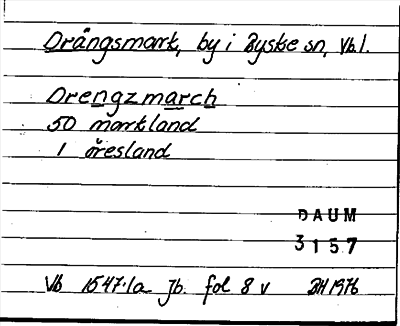 Drängsmark, by i Byske sn, Vb l.
Drengzmarch
50 markland
1 öresland
DAUM
3157
Vb 1547:1a Jb. fol 8 v BH 1976